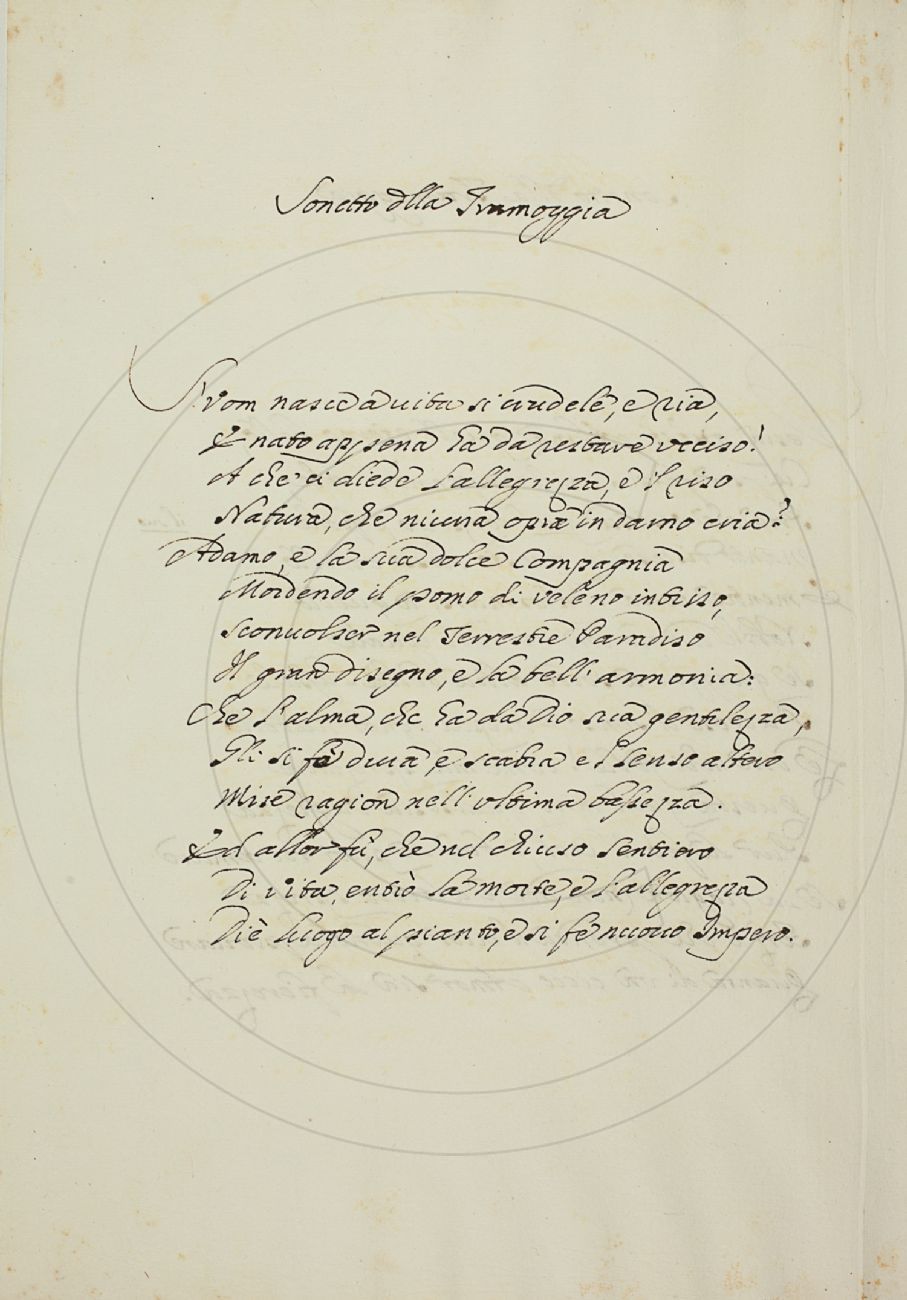 Sonetto dlla Tramoggia
S'vom nasce à vita si crudele, è ria,
E nato appena hà dà restare vcciso!
A che ci diede l'allegrezza, è il riso
Natura, che niuna opra in darno cria?
Adamo, è la sua dolce Compagnia
Mordendo il pomo di veleno intriso,
Sconuolser nel Terrestre Paradiso
Il gran disegno, è la bell'armonia:
Che l'alma, che hà dà Dio sua gentilezza,
Gli si fè dura, è scabra e'l senso altero
Mise ragion nell'vltima bassezza.
Ed allor fù, che nel chiuso sentiero
Di vita, entrò la morte, è l'allegrezza
Diè luogo al pianto, è si fè nuouo Impero.